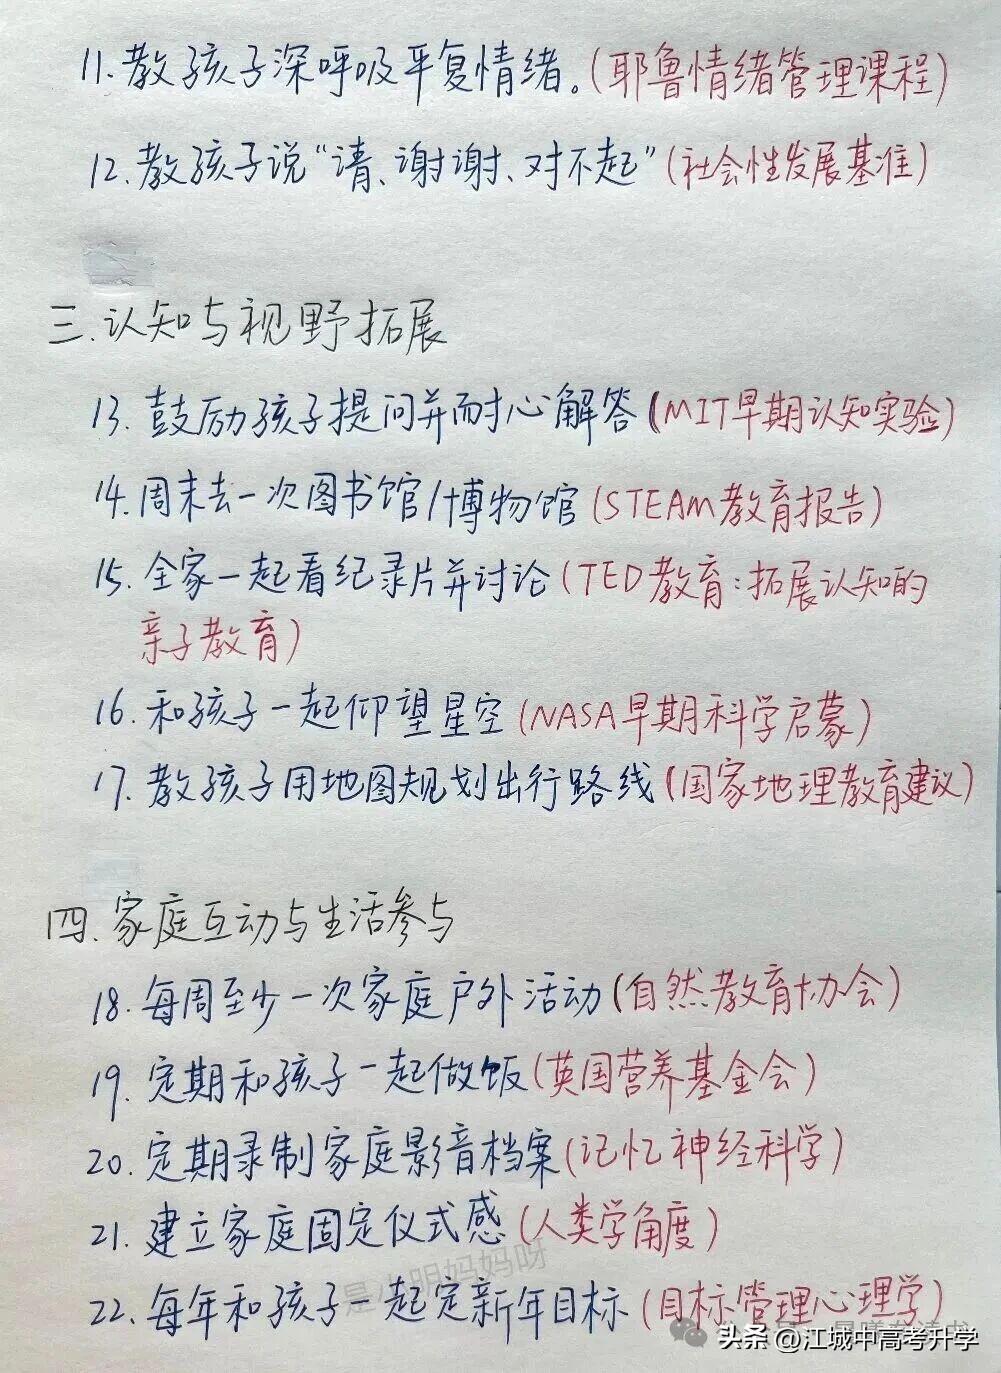 11.教孩子深呼吸平复情绪。(耶鲁情绪管理课程)
12.教孩子说“请、谢谢、对不起”(社会性发展基准)
三.认知与视野拓展
13.鼓励孩子提问并耐心解答(MIT早期认知实验)
14.周末去一次图书馆/博物馆(STEAM教育报告)
15.全家一起看纪录片并讨论(TED教育:拓展认知的
亲子教育)
16.和孩子一起仰望星空(NASA早期科学启蒙)
17.教孩子用地图规划出行路线(国家地理教育建议)
四.家庭互动与生活参与
18.每周至少一次家庭户外活动(自然教育协会)
19.定期和孩子一起做饭(英国营养基金会)
20.定期录制家庭影音档案(记忆神经科学)
21.建立家庭固定仪式感(人类学角度)
是小明妈妈呀
22.每年和孩子一起定新年目标(目标管理心理学)
头条@江城中高考升学